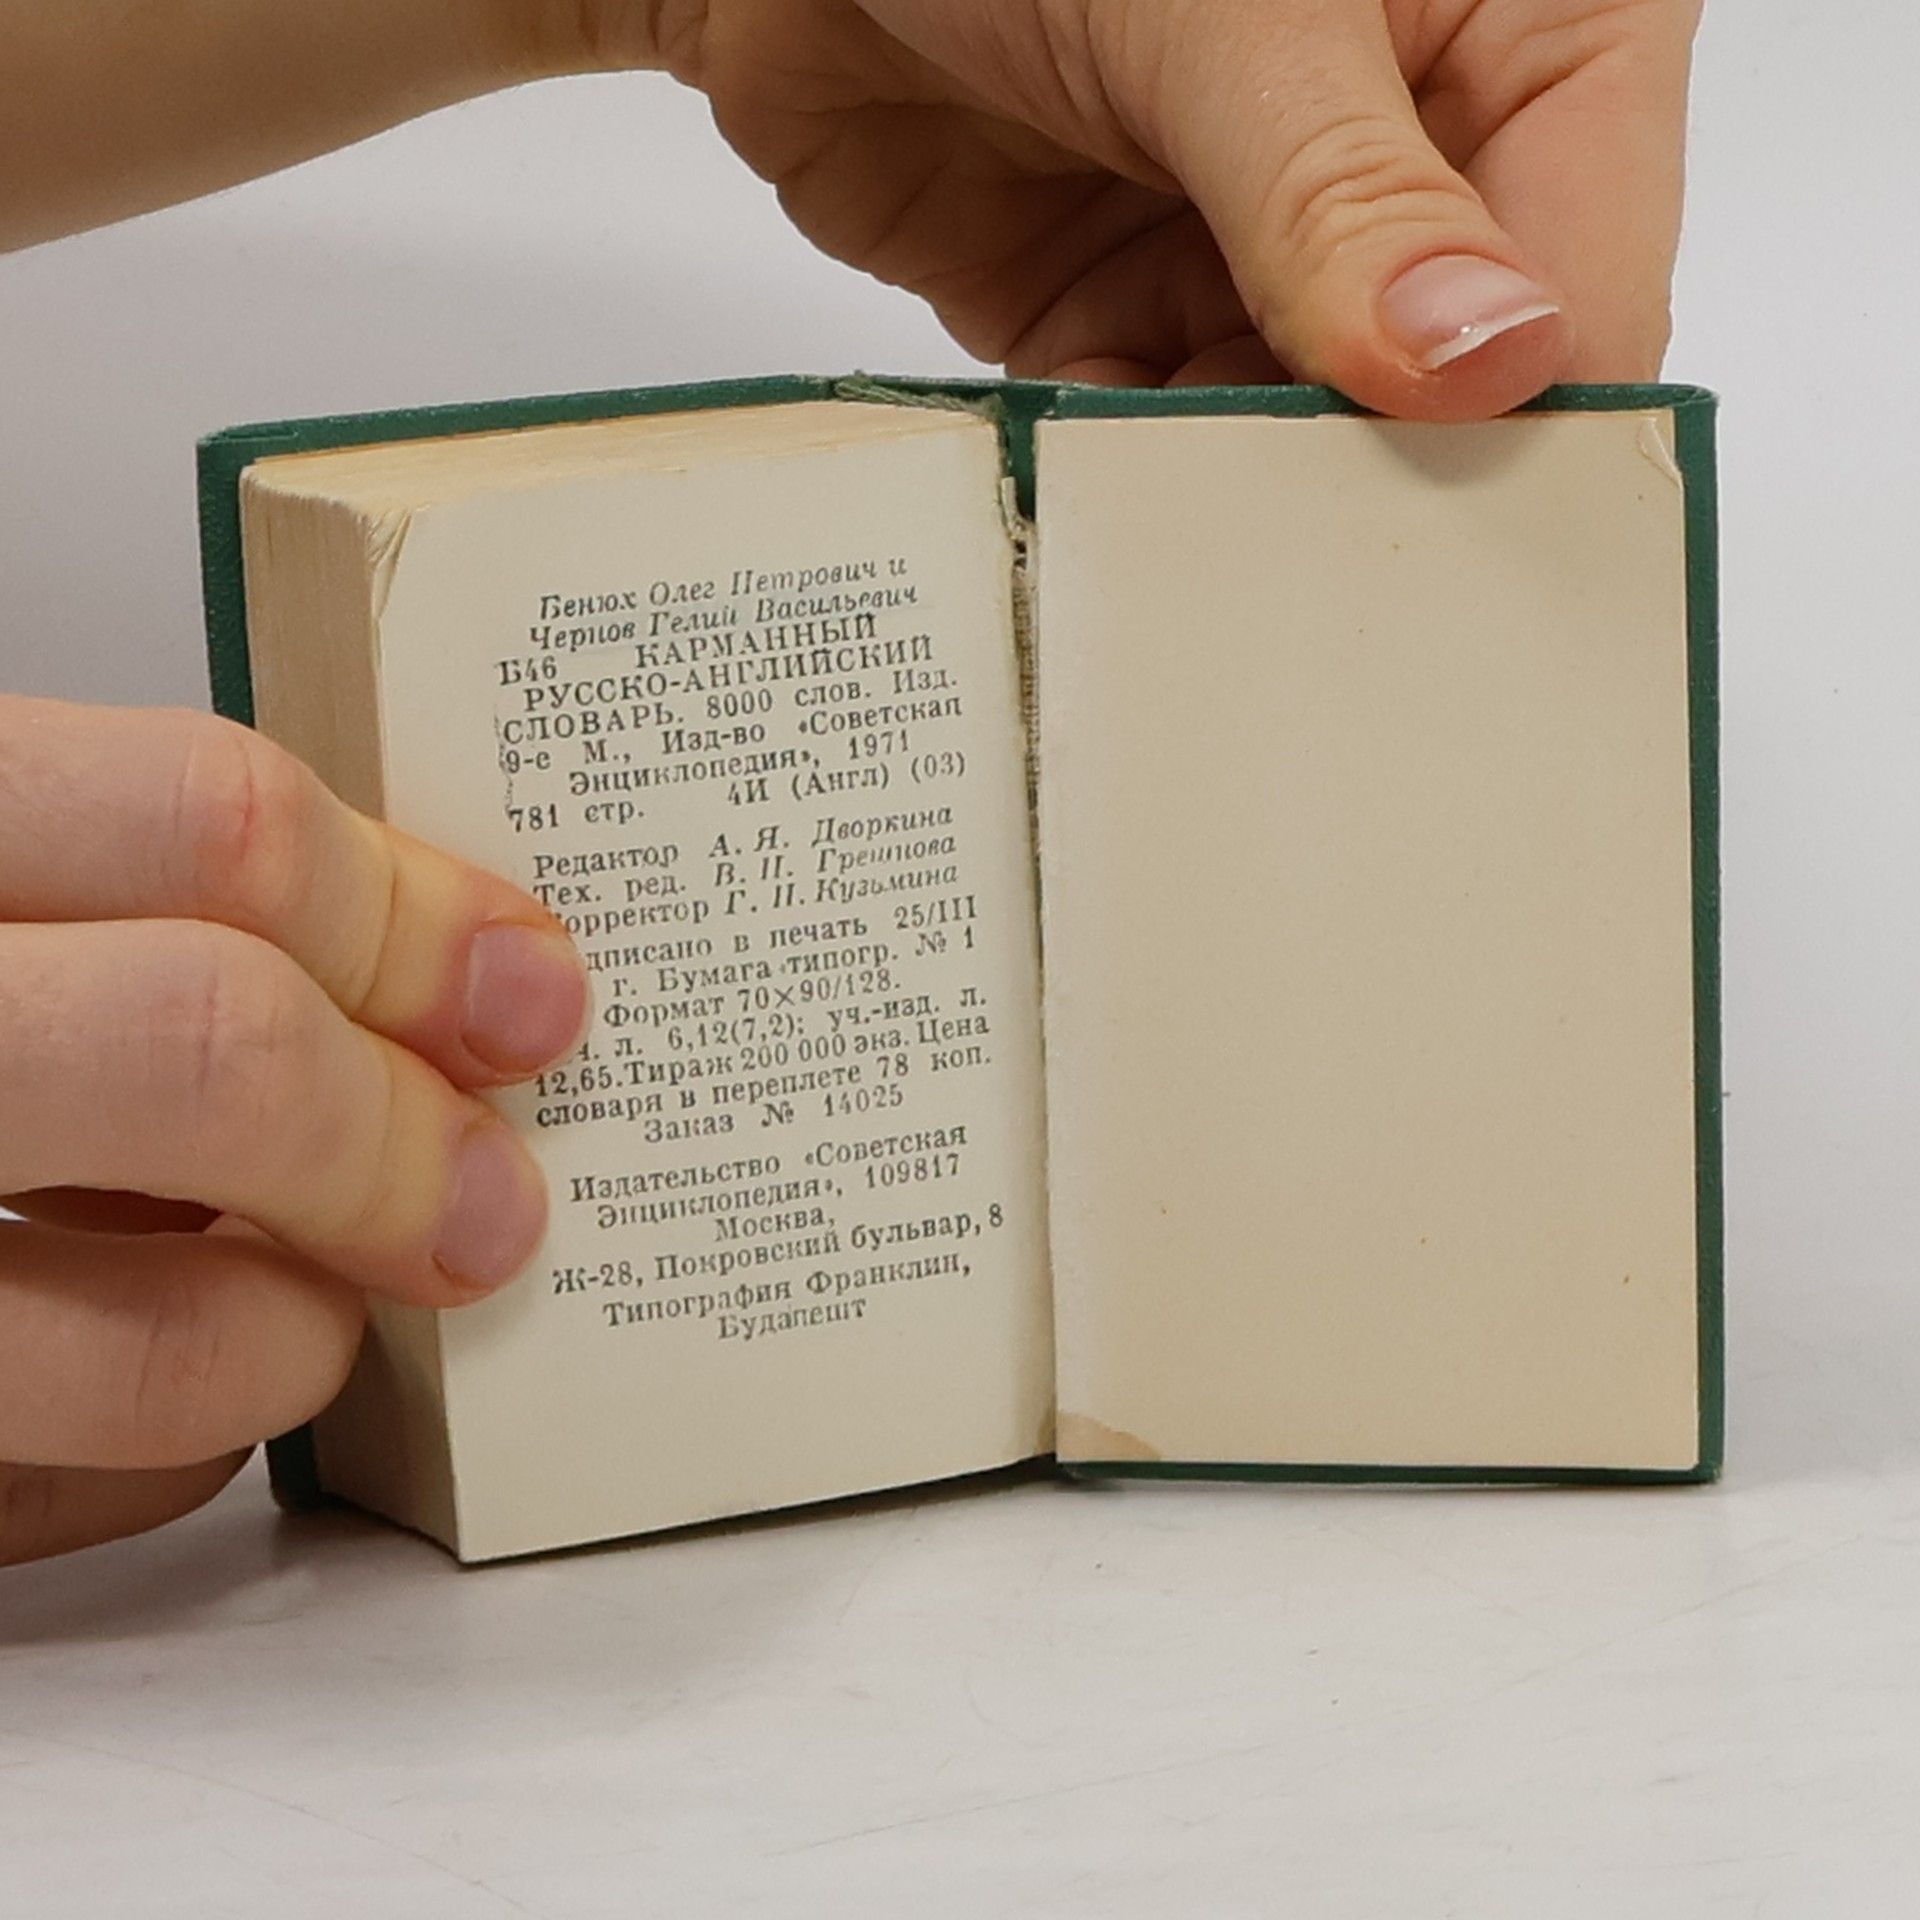 Бенюх Олег Петрович и
Чернов Гелий Васильевич
Б46 КАРМАННЫЙ
РУССКО-АНГЛИЙСКИЙ
СЛОВАРЬ. 8000 слов. Изд.
9-е М., Изд-во «Советская
Энциклопедия», 1971
781 стр. 4И (Англ) (03)
Редактор А. Я. Дворкина
Тех. ред. В. П. Грешнова
орректор Г. П. Кузьмина
дписано в печать 25/III
г. Бумага типогр. № 1
Формат 70×90/128.
л. 6,12(7,2); уч.-изд. л.
12,65. Тираж 200 000 экз. Цена
словаря в переплете 78 коп.
Заказ № 14025
Издательство «Советская
Энциклопедия», 109817
Москва,
Ж-28, Покровский бульвар, 8
Типография Франклин,
Будапешт